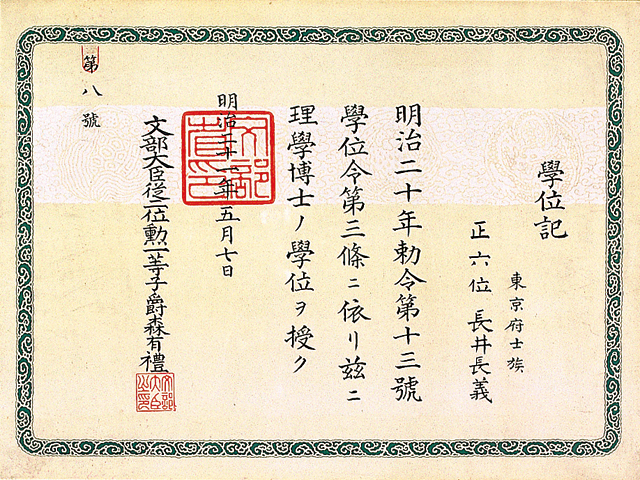 學位記
東京府士族
正六位 長井長義
明治二十年勅令第十三號
學位令第三條ニ依リ茲ニ
理學博士ノ學位ヲ授ク
明治二十一年五月七日
文部大臣從二位勳一等子爵森有禮
第八號
文部省印
文部大臣之印